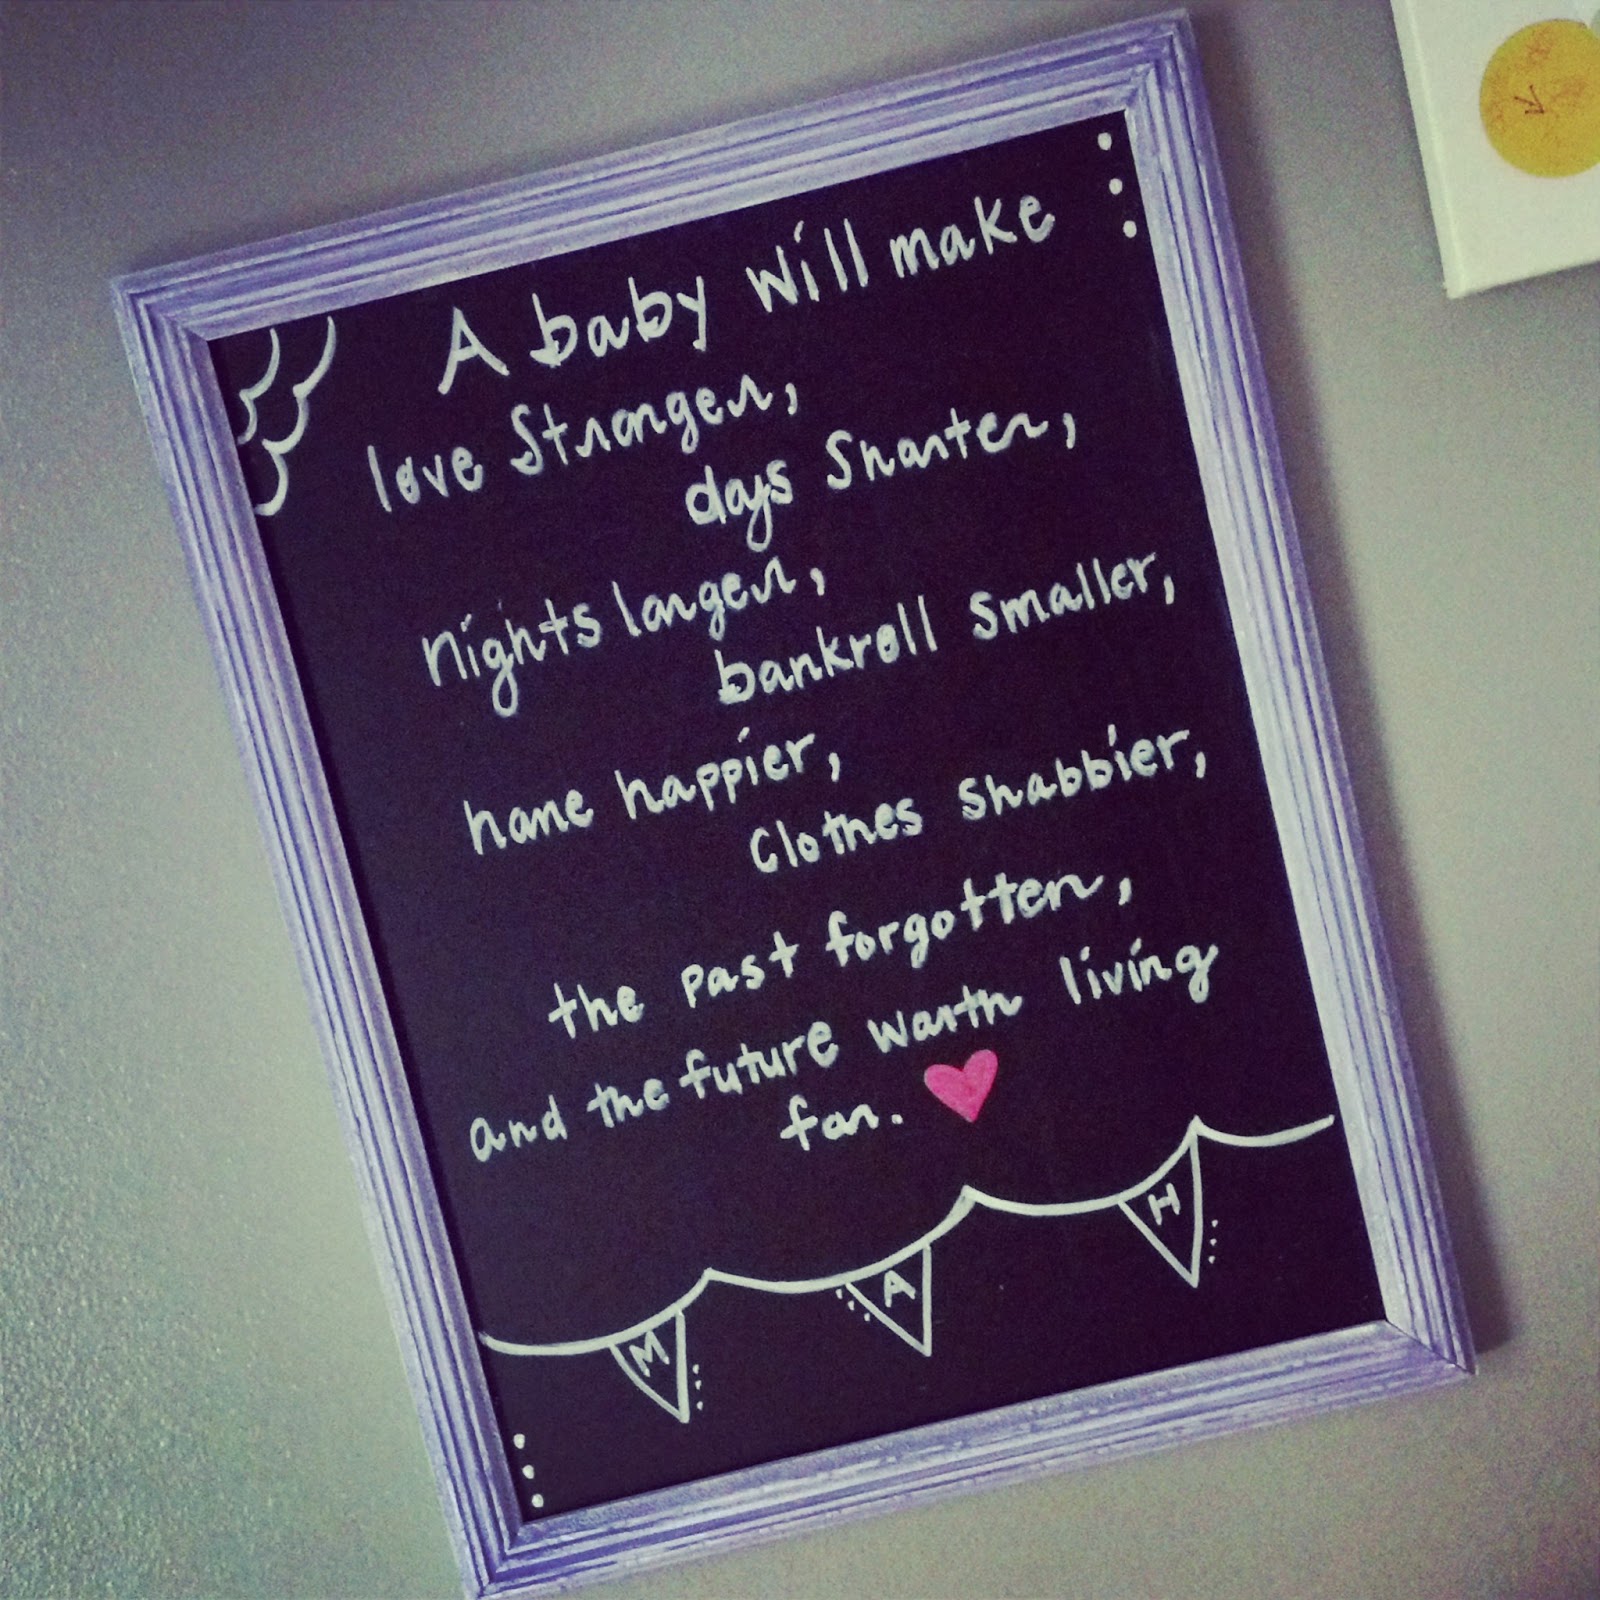 A baby will make
love stronger,
days shorter,
nights longer,
bankroll smaller,
home happier,
clothes shabbier,
the past forgotten,
and the future worth living
for.
M A H